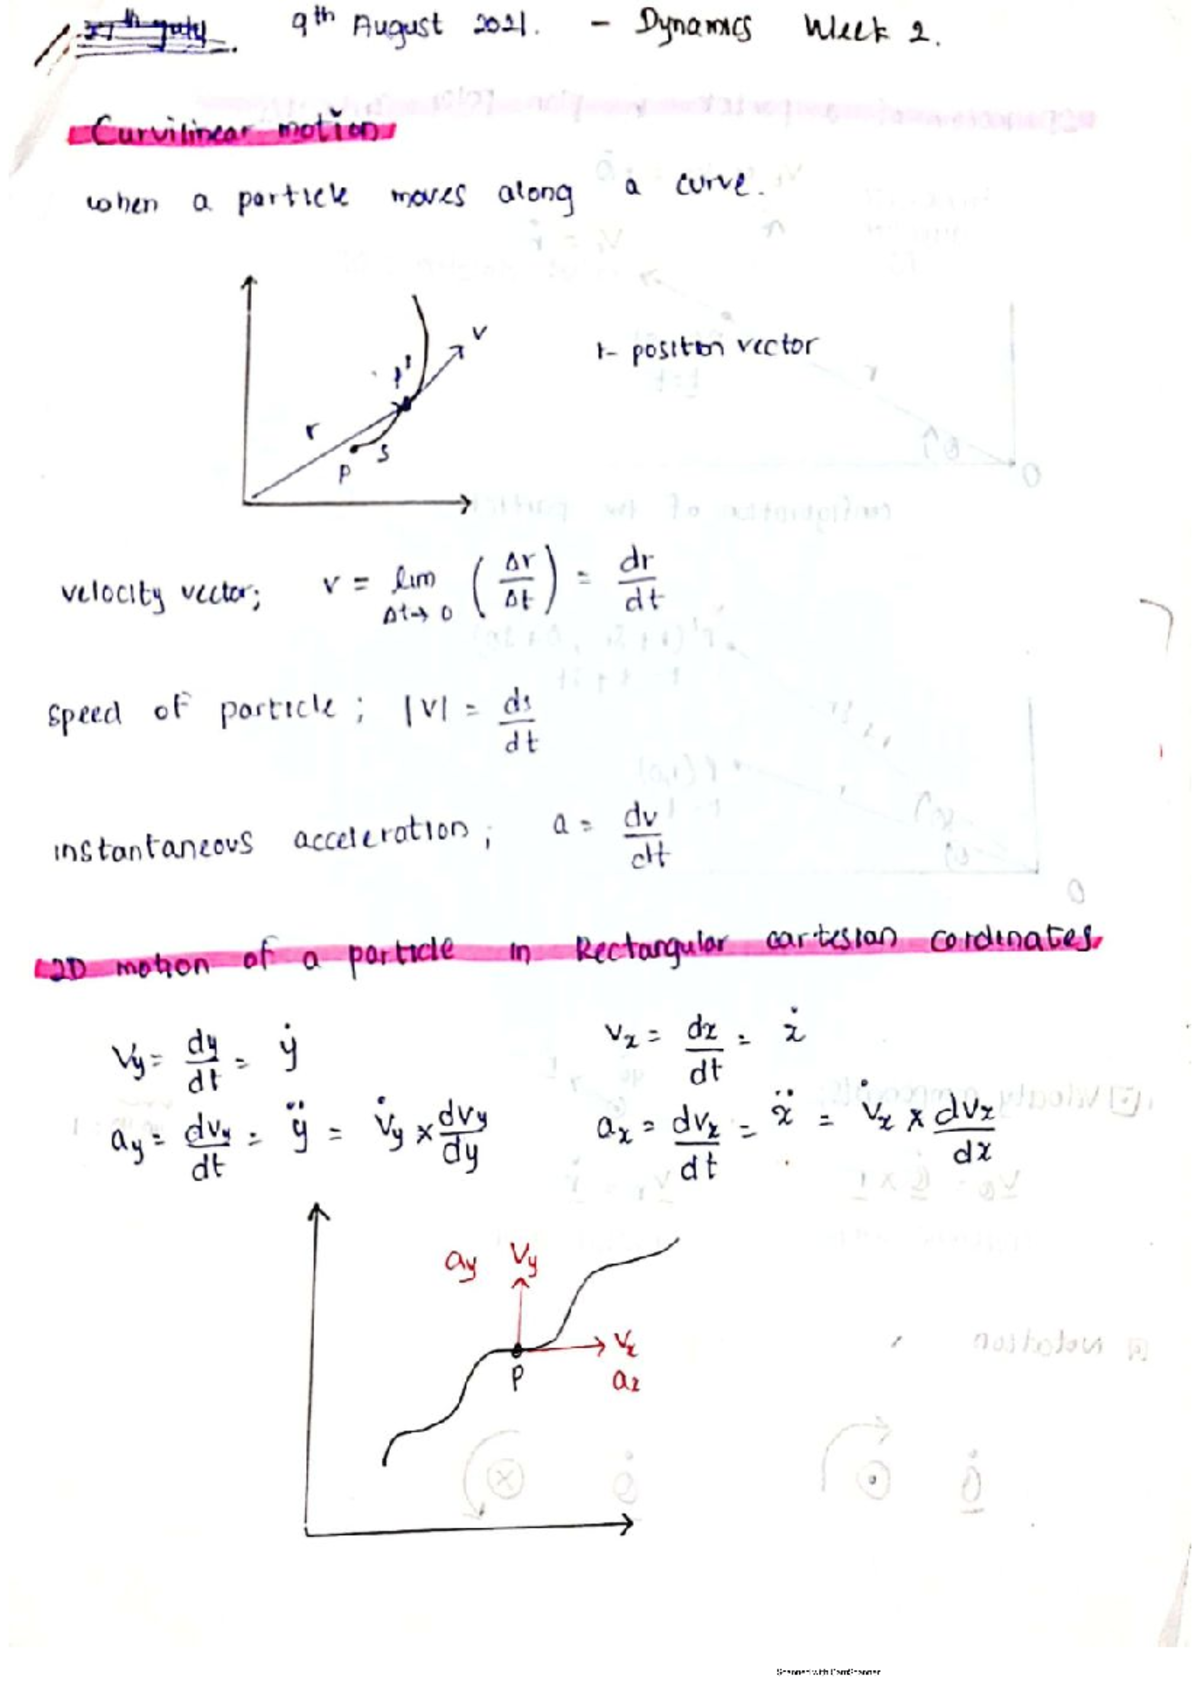 9th August 2021. - Dynamics Week 2.
Curvilinear motion
when a particle moves along a curve.
v
p'
r- position vector
r
s
P
velocity vector; v = lim Δt→0 (Δr/Δt) = dr/dt
speed of particle; |v| = ds/dt
instantaneous acceleration; a = dv/dt
2D motion of a particle in Rectangular cartesian cordinates.
Vy = dy/dt = ẏ    Vx = dx/dt = ẋ
ay = dVy/dt = ÿ = V̇y × dVy/dy    ax = dVx/dt = ẍ = V̇x × dVx/dx
ay Vy
Vx
P
ax
Scanned with CamScanner